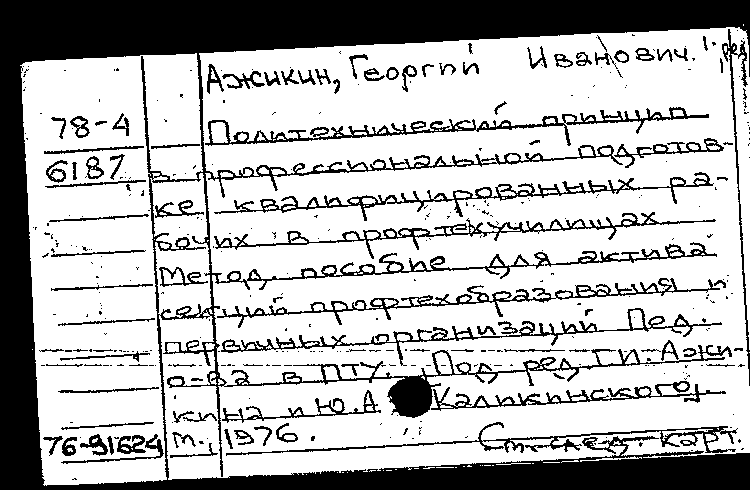 Ажикин, Георгий Иванович. ред
78-4 Политехнический принцип
6187 в профессиональной подготов-
ке квалифицированных ра-
бочих в профтехучилищах
Метод. пособие для актива
секций профтехобразования и
первичных организаций Пед.
о-ва в ПТУ. Под ред. Г.И. Ажи-
кина и Ю.А. Каликинского,
76-91624 м., 1976. См. след. карт.